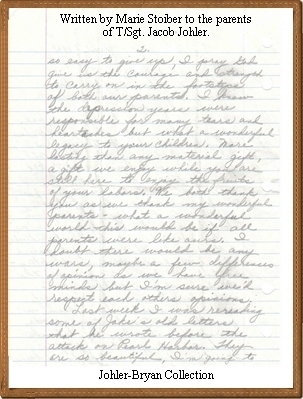 Written by Marie Stoiber to the parents
of T/Sgt. Jacob Johler.
2.
so easy to give up, I pray God
give us the courage and strength
to carry on in the footsteps
of both our parents. I know
the depression years were
responsible for many tears and
heartaches but what a wonderful
legacy to your children. More
lasting than any material gift,
a gift we enjoy while you are
still here to enjoy the fruits
of your labors. We both thank
you as we thank my wonderful
parents - what a wonderful
world this would be if all
parents were like ours. I
doubt there would be any
wars, maybe a few differences
of opinion as we have free
minds but I'm sure we'd
respect each others opinions.
Last week I was rereading
some of Jake's old letters
that he wrote before the
attack on Pearl Harbor. They
are so beautiful, I'm going to
Johler-Bryan Collection